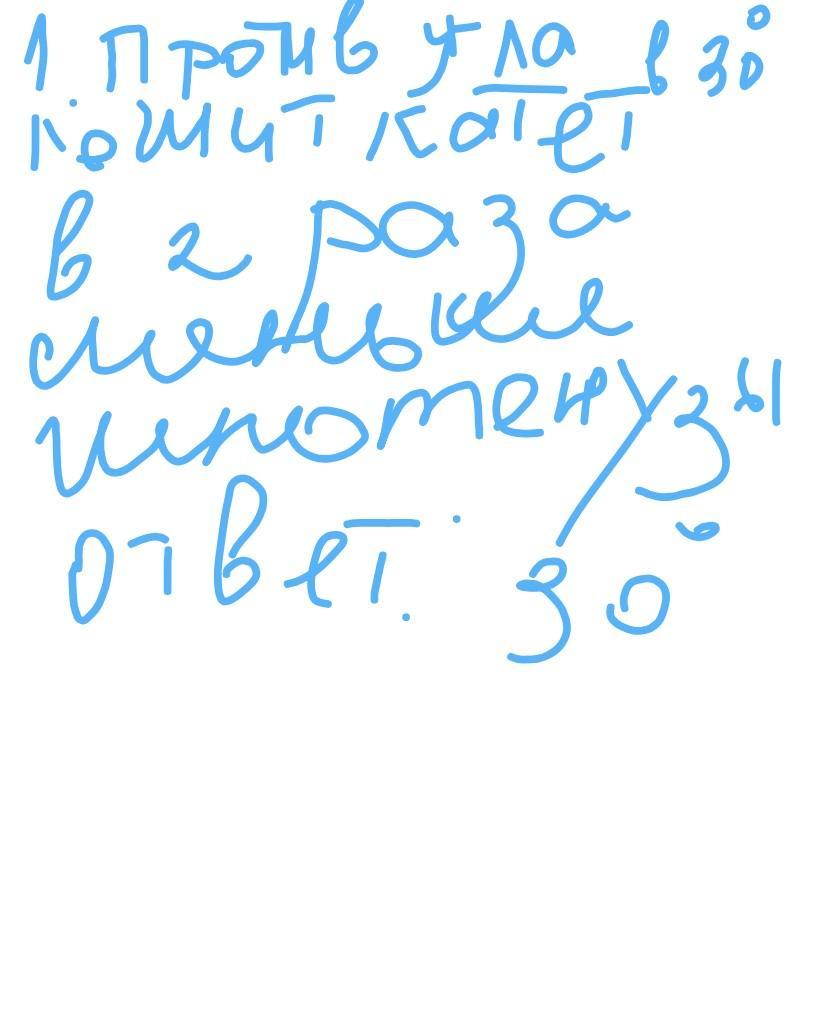 1. Против угла в 30°
лежит катет
в 2 раза
меньше
гипотенузы
ответ: 30°